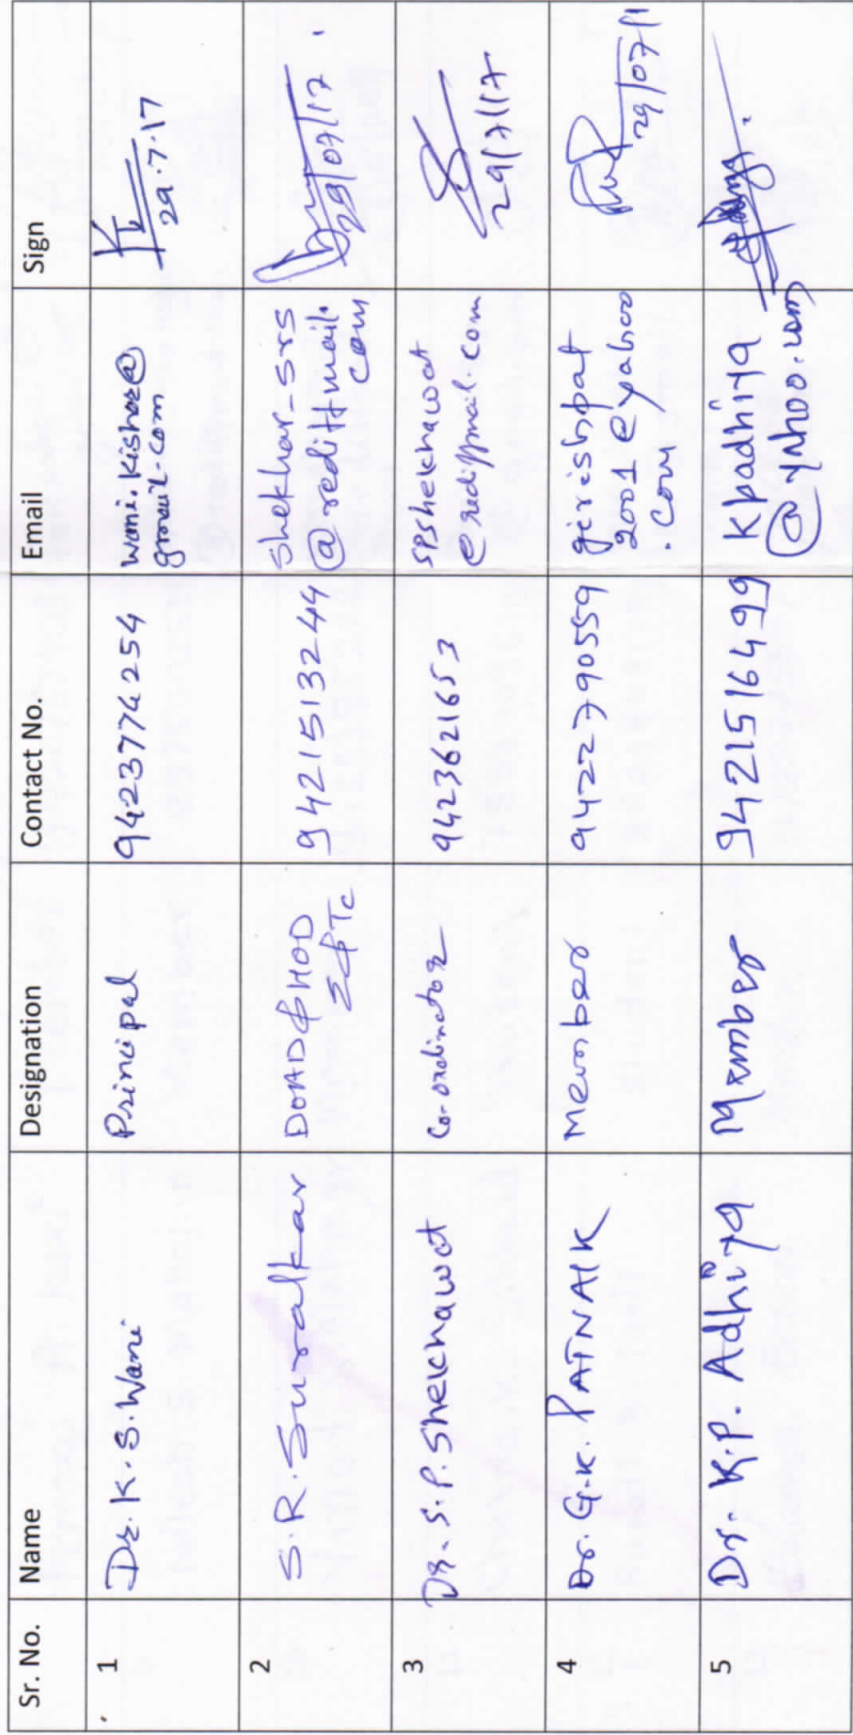 Sr. No. Name Designation Contact No. Email Sign
1 Dr. K. S. Wani Principal 9423774254 wani.kishor@
gmail.com
29.7.17
2 S. R. Suralkar DOAD & HOD 9421513244 shekhar_srs
E&Tc @rediffmail.
com
29/07/17
3 Dr. S. P. Shekhawat Co-ordinator 9423621653 spshekhawat
@rediffmail.com
29/7/17
4 Dr. G. K. PATNAIK Member 9422790559 girishpat
2001@yahoo
.com
29/07/1
5 Dr. K. P. Adhiya Member 9421516499 kpadhiya
@yahoo.com